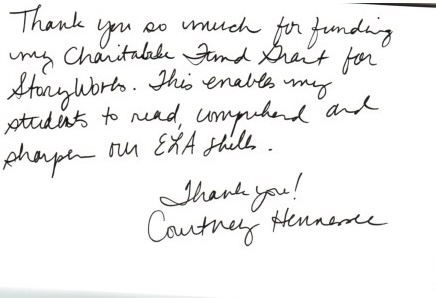 Thank you so much for funding
my Charitable Fund Grant for
StoryWorks. This enables my
students to read, comprehend and
sharpen our ELA skills.
Thank you!
Courtney Hennessee